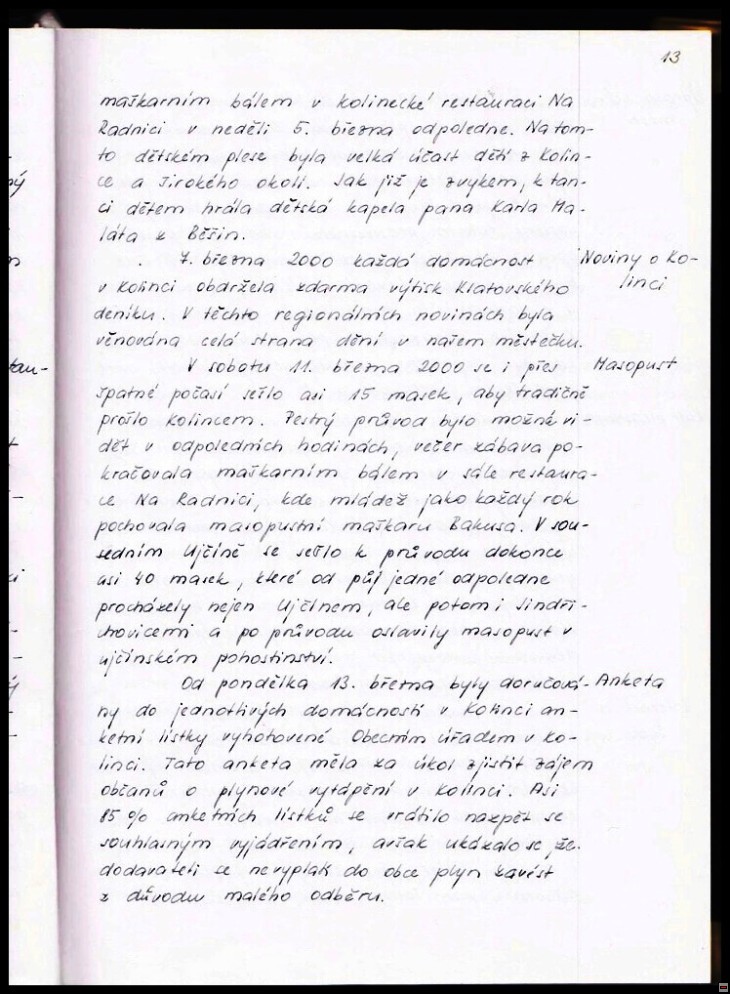 13
maškarním bálem v kolinecké restauraci Na
Radnici v neděli 5. března odpoledne. Na tom-
to dětském plese byla velká účast dětí z Kolin-
ce a širokého okolí. Jak již je zvykem, k tan-
ci dětem hrála dětská kapela pana Karla Ma-
láta z Běšin.
7. března 2000 každá domácnost
Noviny o Ko-
linci
v Kolinci obdržela zdarma výtisk Klatovského
deníku. V těchto regionálních novinách byla
věnována celá strana dění v našem městečku.
V sobotu 11. března 2000 se i přes
Masopust
špatné počasí sešlo asi 15 masek, aby tradičně
prošlo Kolincem. Pestrý průvod bylo možné vi-
dět v odpoledních hodinách, večer zábava po-
kračovala maškarním bálem v sále restaura-
ce Na Radnici, kde mládež jako každý rok
pochovala masopustní maškaru Bakusa. V sou-
sedním Ujčíně se sešlo k průvodu dokonce
asi 40 masek, které od půl jedné odpoledne
procházely nejen Ujčínem, ale potom i Jindři-
chovicemi a po průvodu oslavily masopust v
ujčínském pohostinství.
Od pondělka 13. března byly doručová-
Anketa
ny do jednotlivých domácností v Kolinci an-
ketní lístky vyhotovené Obecním úřadem v Ko-
linci. Tato anketa měla za úkol zjistit zájem
občanů o plynové vytápění v Kolinci. Asi
85 % anketních lístků se vrátilo nazpět se
souhlasným vyjádřením, avšak ukázalo se, že
dodavateli se nevyplatí do obce plyn zavést
z důvodu malého odběru.